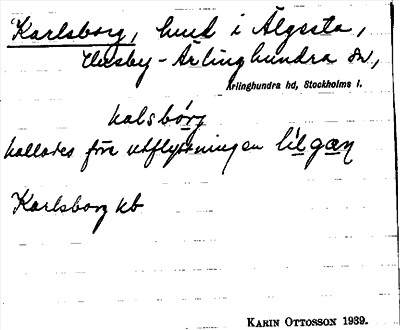 Karlsborg, hmd i Älgsta,
Husby-Ärlinghundra sn,
Ärlinghundra hd, Stockholms l.
kalsbórg
kallades före utflyttningen lílgæn
Karlsborg kb
KARIN OTTOSSON 1939.